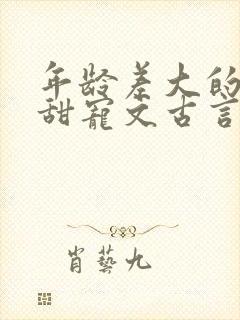 年龄差大的
甜宠文古言
肖艺九